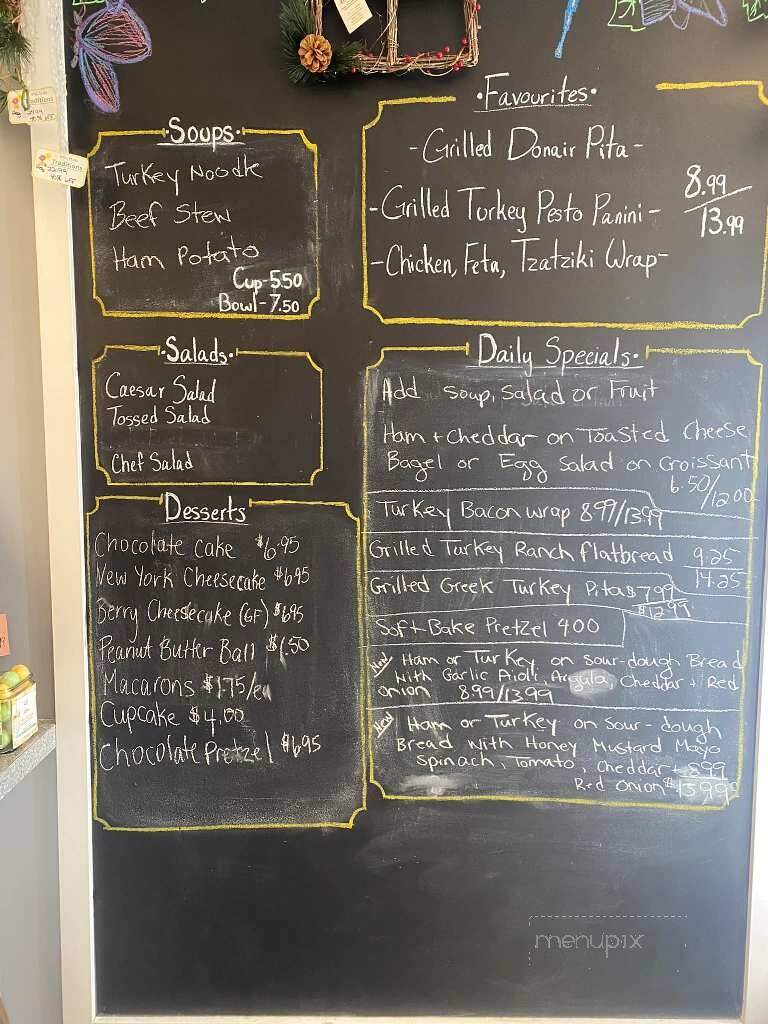 Traditions
40% OFF
Traditions
22.99
40% OFF
·Soups·
Turkey Noodle
Beef Stew
Ham Potato
Cup-5.50
Bowl-7.50
·Salads·
Caesar Salad
Tossed Salad
Chef Salad
Desserts
Chocolate Cake $6.95
New York Cheesecake $6.95
Berry Cheesecake (GF) $6.95
Peanut Butter Ball $1.50
Macarons $1.75/ea
Cupcake $4.00
Chocolate Pretzel $6.95
·Favourites·
-Grilled Donair Pita-
-Grilled Turkey Pesto Panini-
8.99
13.99
-Chicken, Feta, Tzatziki Wrap-
Daily Specials·
Add soup, salad or Fruit
Ham + Cheddar on Toasted Cheese
Bagel or Egg Salad on Croissant
6.50/12.00
Turkey Bacon wrap 8.99/13.99
Grilled Turkey Ranch flatbread 9.25
14.25
Grilled Greek Turkey Pita $7.99
$12.99
Soft Bake Pretzel 4.00
New Ham or Turkey on sour-dough Bread
with Garlic Aioli, Argula, Cheddar + Red
onion 8.99/13.99
New Ham or Turkey on sour-dough
Bread with Honey Mustard Mayo
Spinach, Tomato, Cheddar + 8.99
Red Onion $13.99
menupix